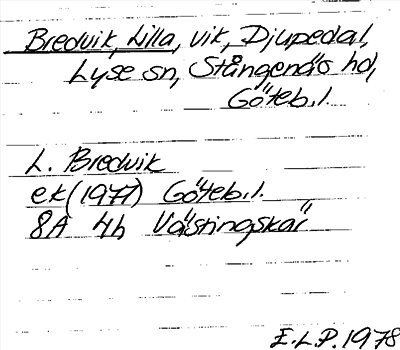 Bredvik, Lilla, vik, Djupedal,
Lyse sn, Stångenäs hd,
Göteb. l.
L. Bredvik
ek (1977) Göteb. l.
8A 4h Västingskär
E.L.P. 1978